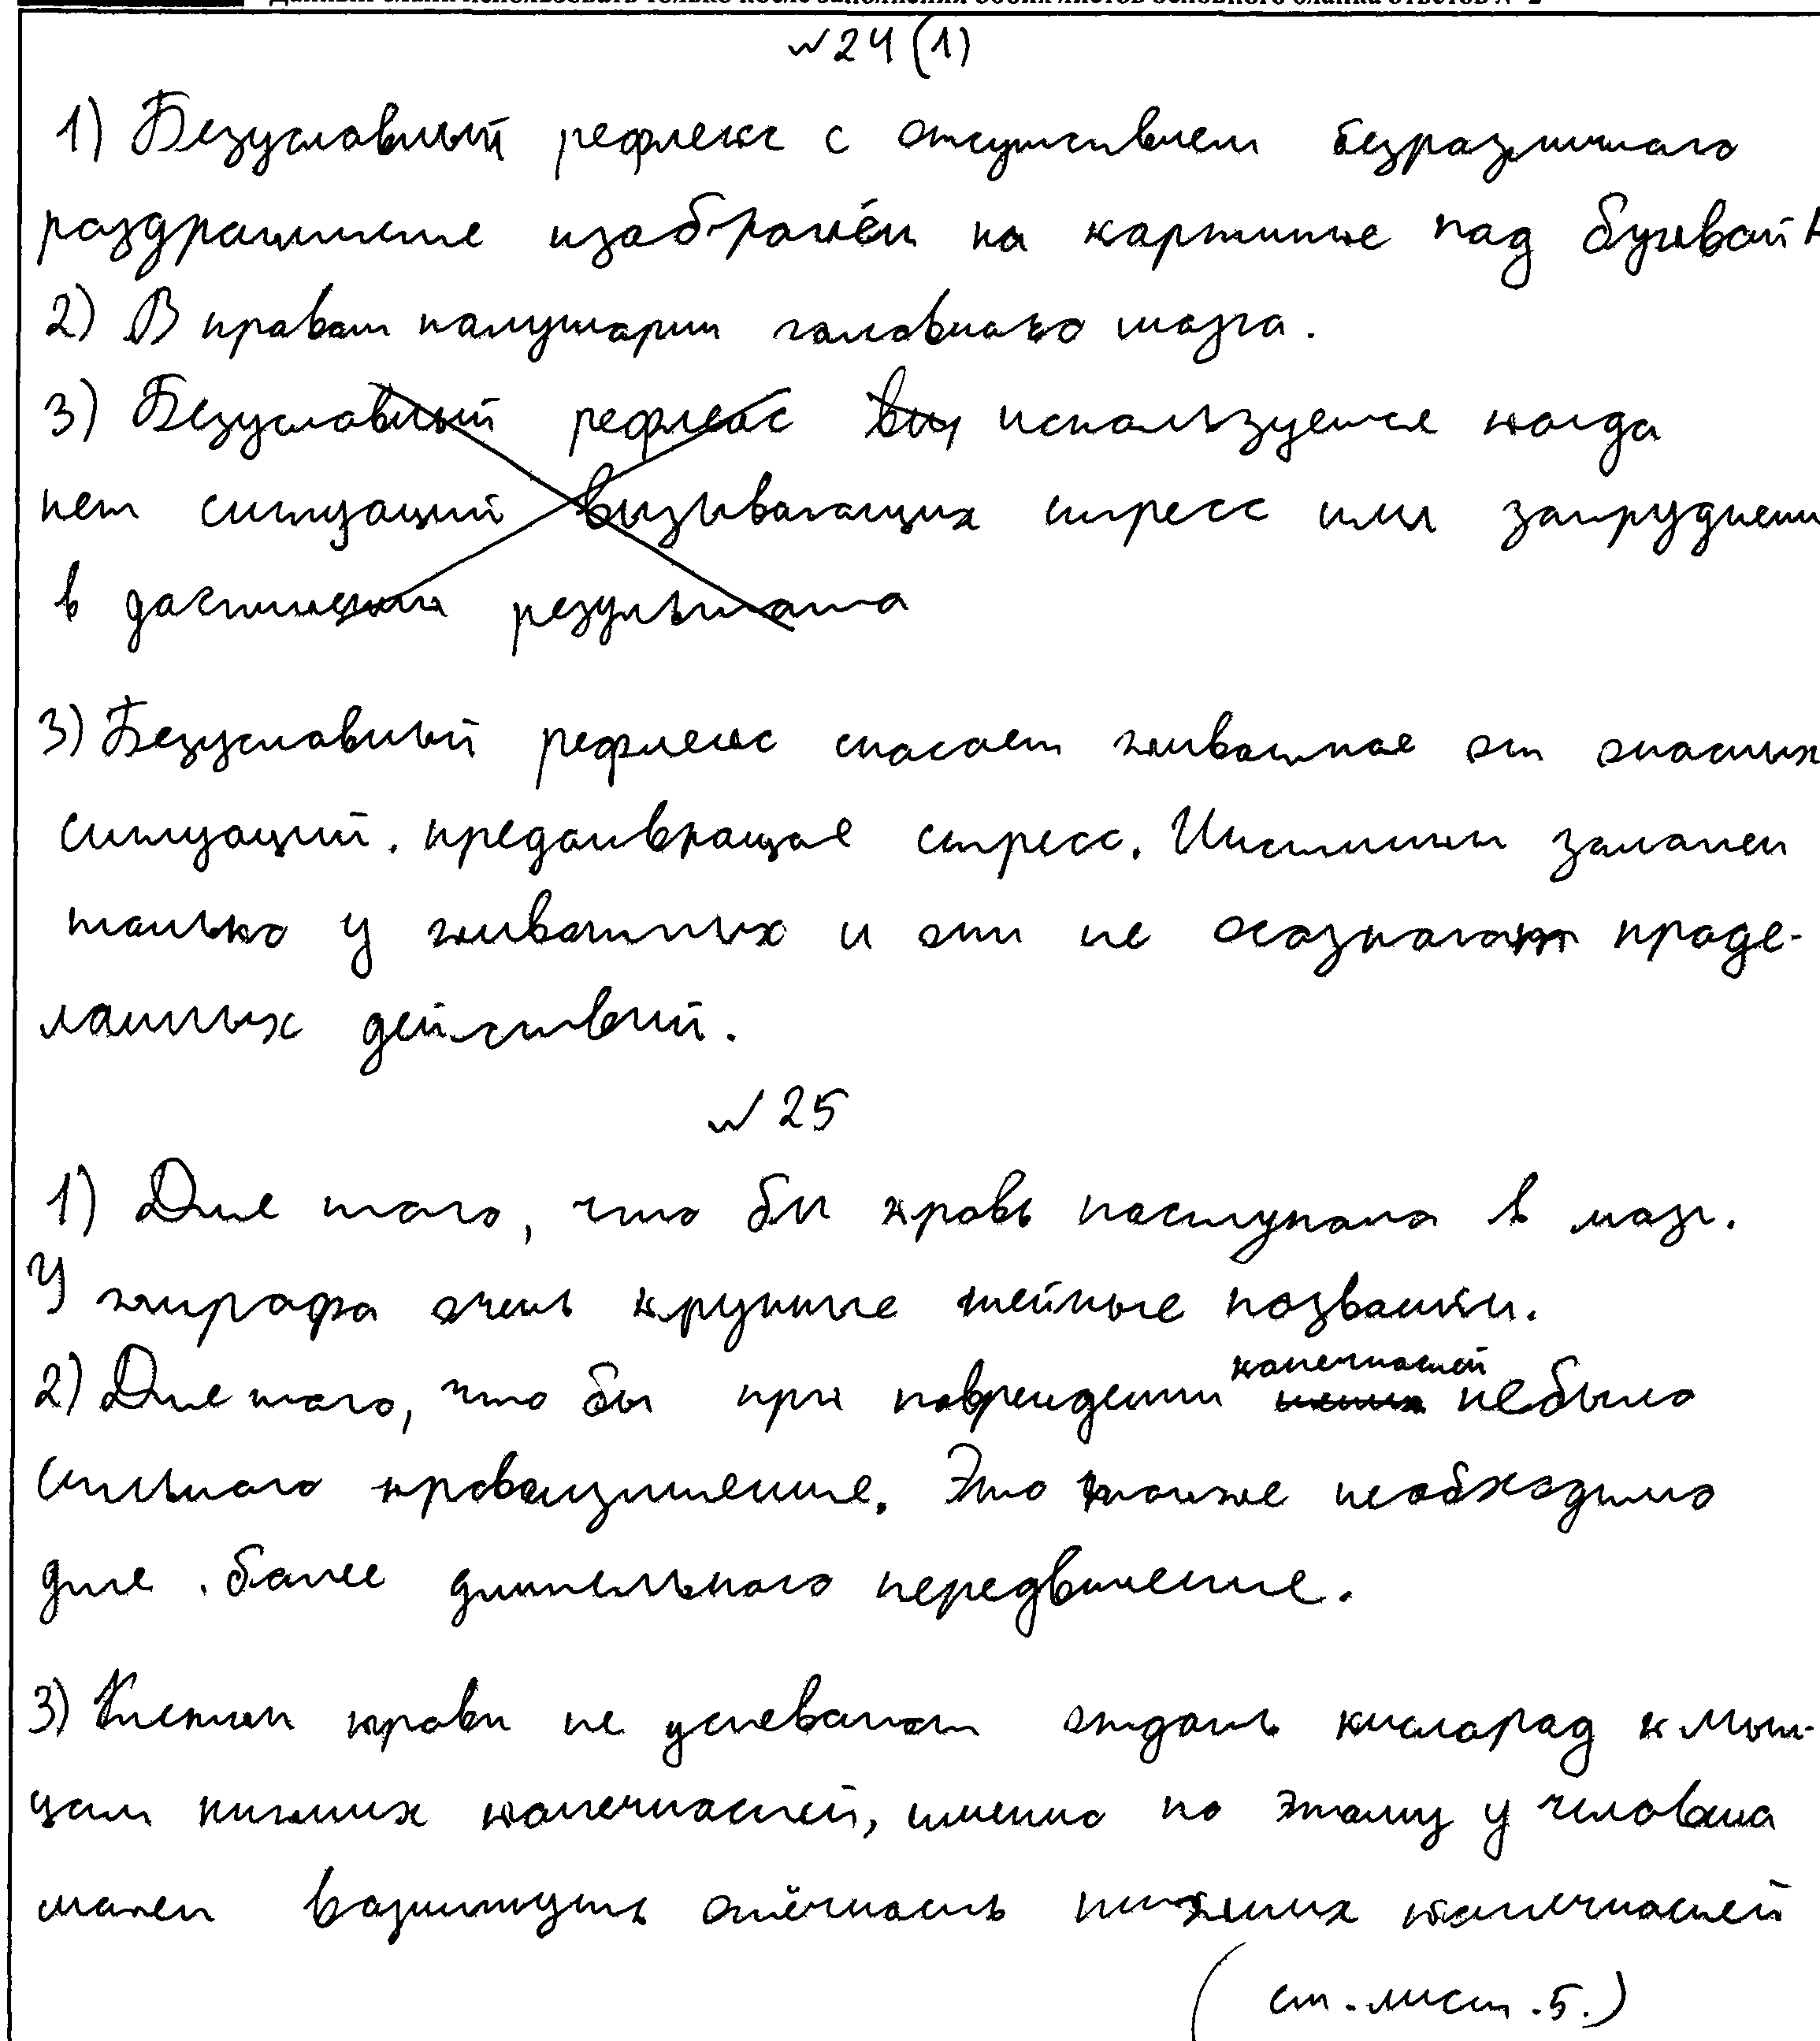 Данный бланк использовать только после заполнения обоих листов основного бланка ответов № 2
№ 24 (1)
1) Безусловный рефлекс с отсутствием безразличного
раздражителя изображён на картинке под буквой
2) В правом полушарии головного мозга.
3) Безусловный рефлекс используется когда
нет ситуаций вызывающих стресс или затруднени
в достижении результата
3) Безусловный рефлекс спасает животное от опасных
ситуаций. предотвращая стресс. Инстинкт заложен
только у животных и они не осознают проде-
ланных действий.
№ 25
1) Для того, что бы кровь поступала в мозг.
У жирафа очень крупные шейные позвонки.
2) Для того, что бы при повреждении конечностей не было
сильного кровотечения. Это также необходимо
для . более длительного передвижения.
3) Клетки крови не успевают отдать кислород к мыш-
цам нижних конечностей, именно по этому у человека
может возникнуть отёчность нижних конечностей
(см. лист. 5.)